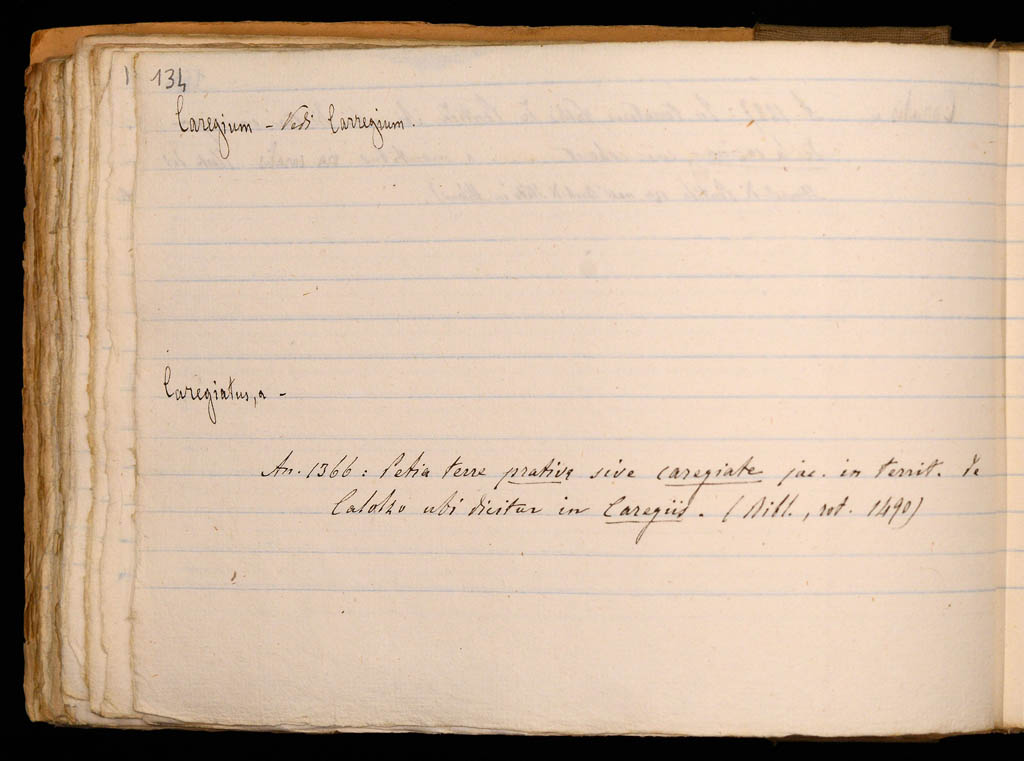 134
Caregium - Vedi Carregium.
Caregiatus, a -
An. 1366: Petia terre prative sive caregiate jac. in territ. de
Calolzo ubi dicitur in Caregiis. (Bibl., rot. 1490)